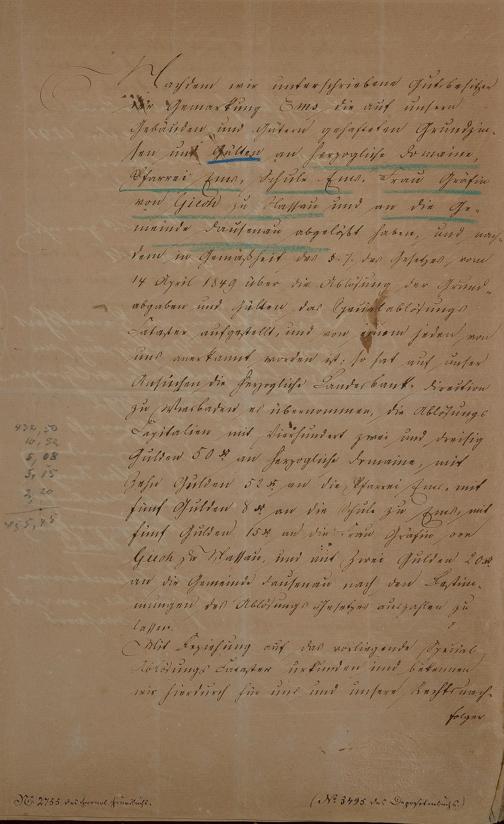 Nachdem wir unterschriebene Gutsbesitzer
der Gemarkung Ems, die auf unsern
Gebäuden und Gütern gehafteten Grundzin-
sen und Gülten an herzogliche Domaine,
Pfarrei Ems, Schule Ems, Frau Gräfin
von Giech zu Nassau und an die Ge-
meinde Dausenau abgelößt haben, und nach-
dem in Gemäßheit des §. 7. des Gesetzes, vom
14 April 1849 über die Ablösung der Grund-
abgaben und Gülten das Specialablösungs
Cataster aufgestellt, und von einem jeden von
uns anerkannt worden ist; so hat auf unser
Ansuchen die herzogliche Landesbank-direktion
zu Wiesbaden es übernommen, die Ablösungs
Capitalien mit Vierhundert zwei und dreißig
Gulden 50 x an herzogliche Domaine, mit
zehn Gulden 52 x an die Pfarrei Ems, mit
fünf Gulden 8 x an die Schule zu Ems, mit
fünf Gulden 15 x an die Frau Gräfin von
Giech zu Nassau, und mit zwei Gulden 20 x
an die Gemeinde Dausenau nach den Bestim-
mungen des Ablösungs Gesetzes auszahlen zu
lassen.
Mit Beziehung auf das vorliegende Special
Ablösungs Cataster urkunden und bekennen
wir hierdurch für uns und unsere Rechtsnach-
folger
432,50
10,52
5,08
5,15
2,20
455,45
No 2755 des
(No 3495 des Depositenbuchs.)